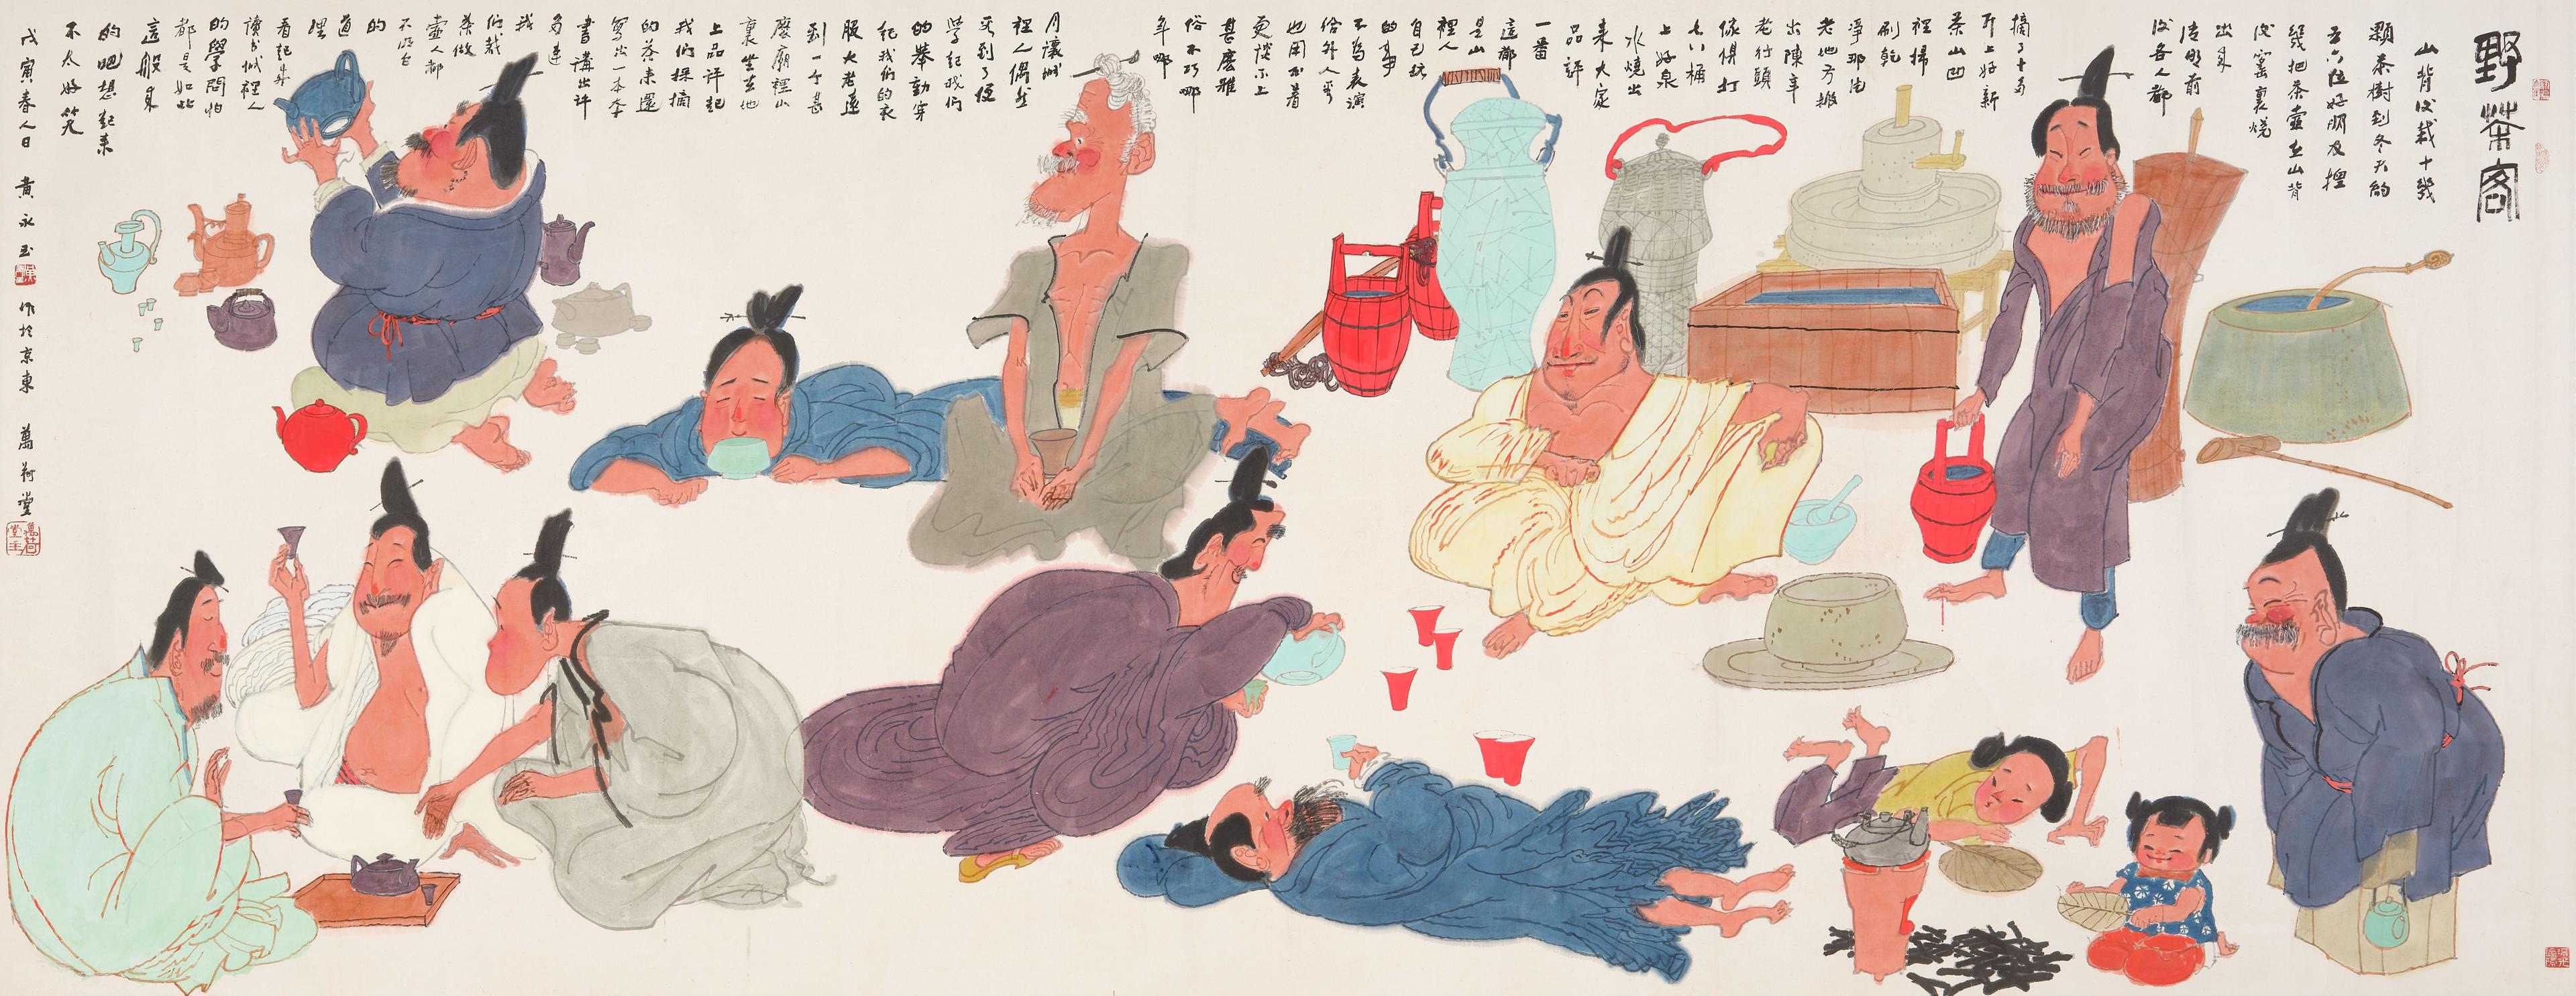 野茶客
山背後栽十幾
顆茶樹到冬天約
五六位好朋友擔
幾把茶壺在山背
後窯裏燒
出來
清明前
後各人都
摘了十多
斤上好新
茶山凹
裡掃
刷乾
淨那塊
老地方搬
出陳年
老行頭
傢俱打
七八桶
上好泉
水燒出
來大家
品評
一番
這都
是山
裡人
自己玩
的事
不為表演
給外人看
也用不着
更談不上
甚麼雅
俗不巧哪
年哪
月讓城
裡人偶然
見到了便
學起我們
的舉動穿
起我們的衣
服大老遠
到一个甚
麼廟裡山
裏坐在地
上品評起
我們採摘
的茶來還
寫出一本本
書講出許
多連
我
們栽
茶做
壺人都
不明白
的
道
理
看起來
讀書城裡人
的學問怕
都是如此
這般來
的吧想起來
不太好笑
戊寅春人日 黃永玉 作於京東 萬荷堂